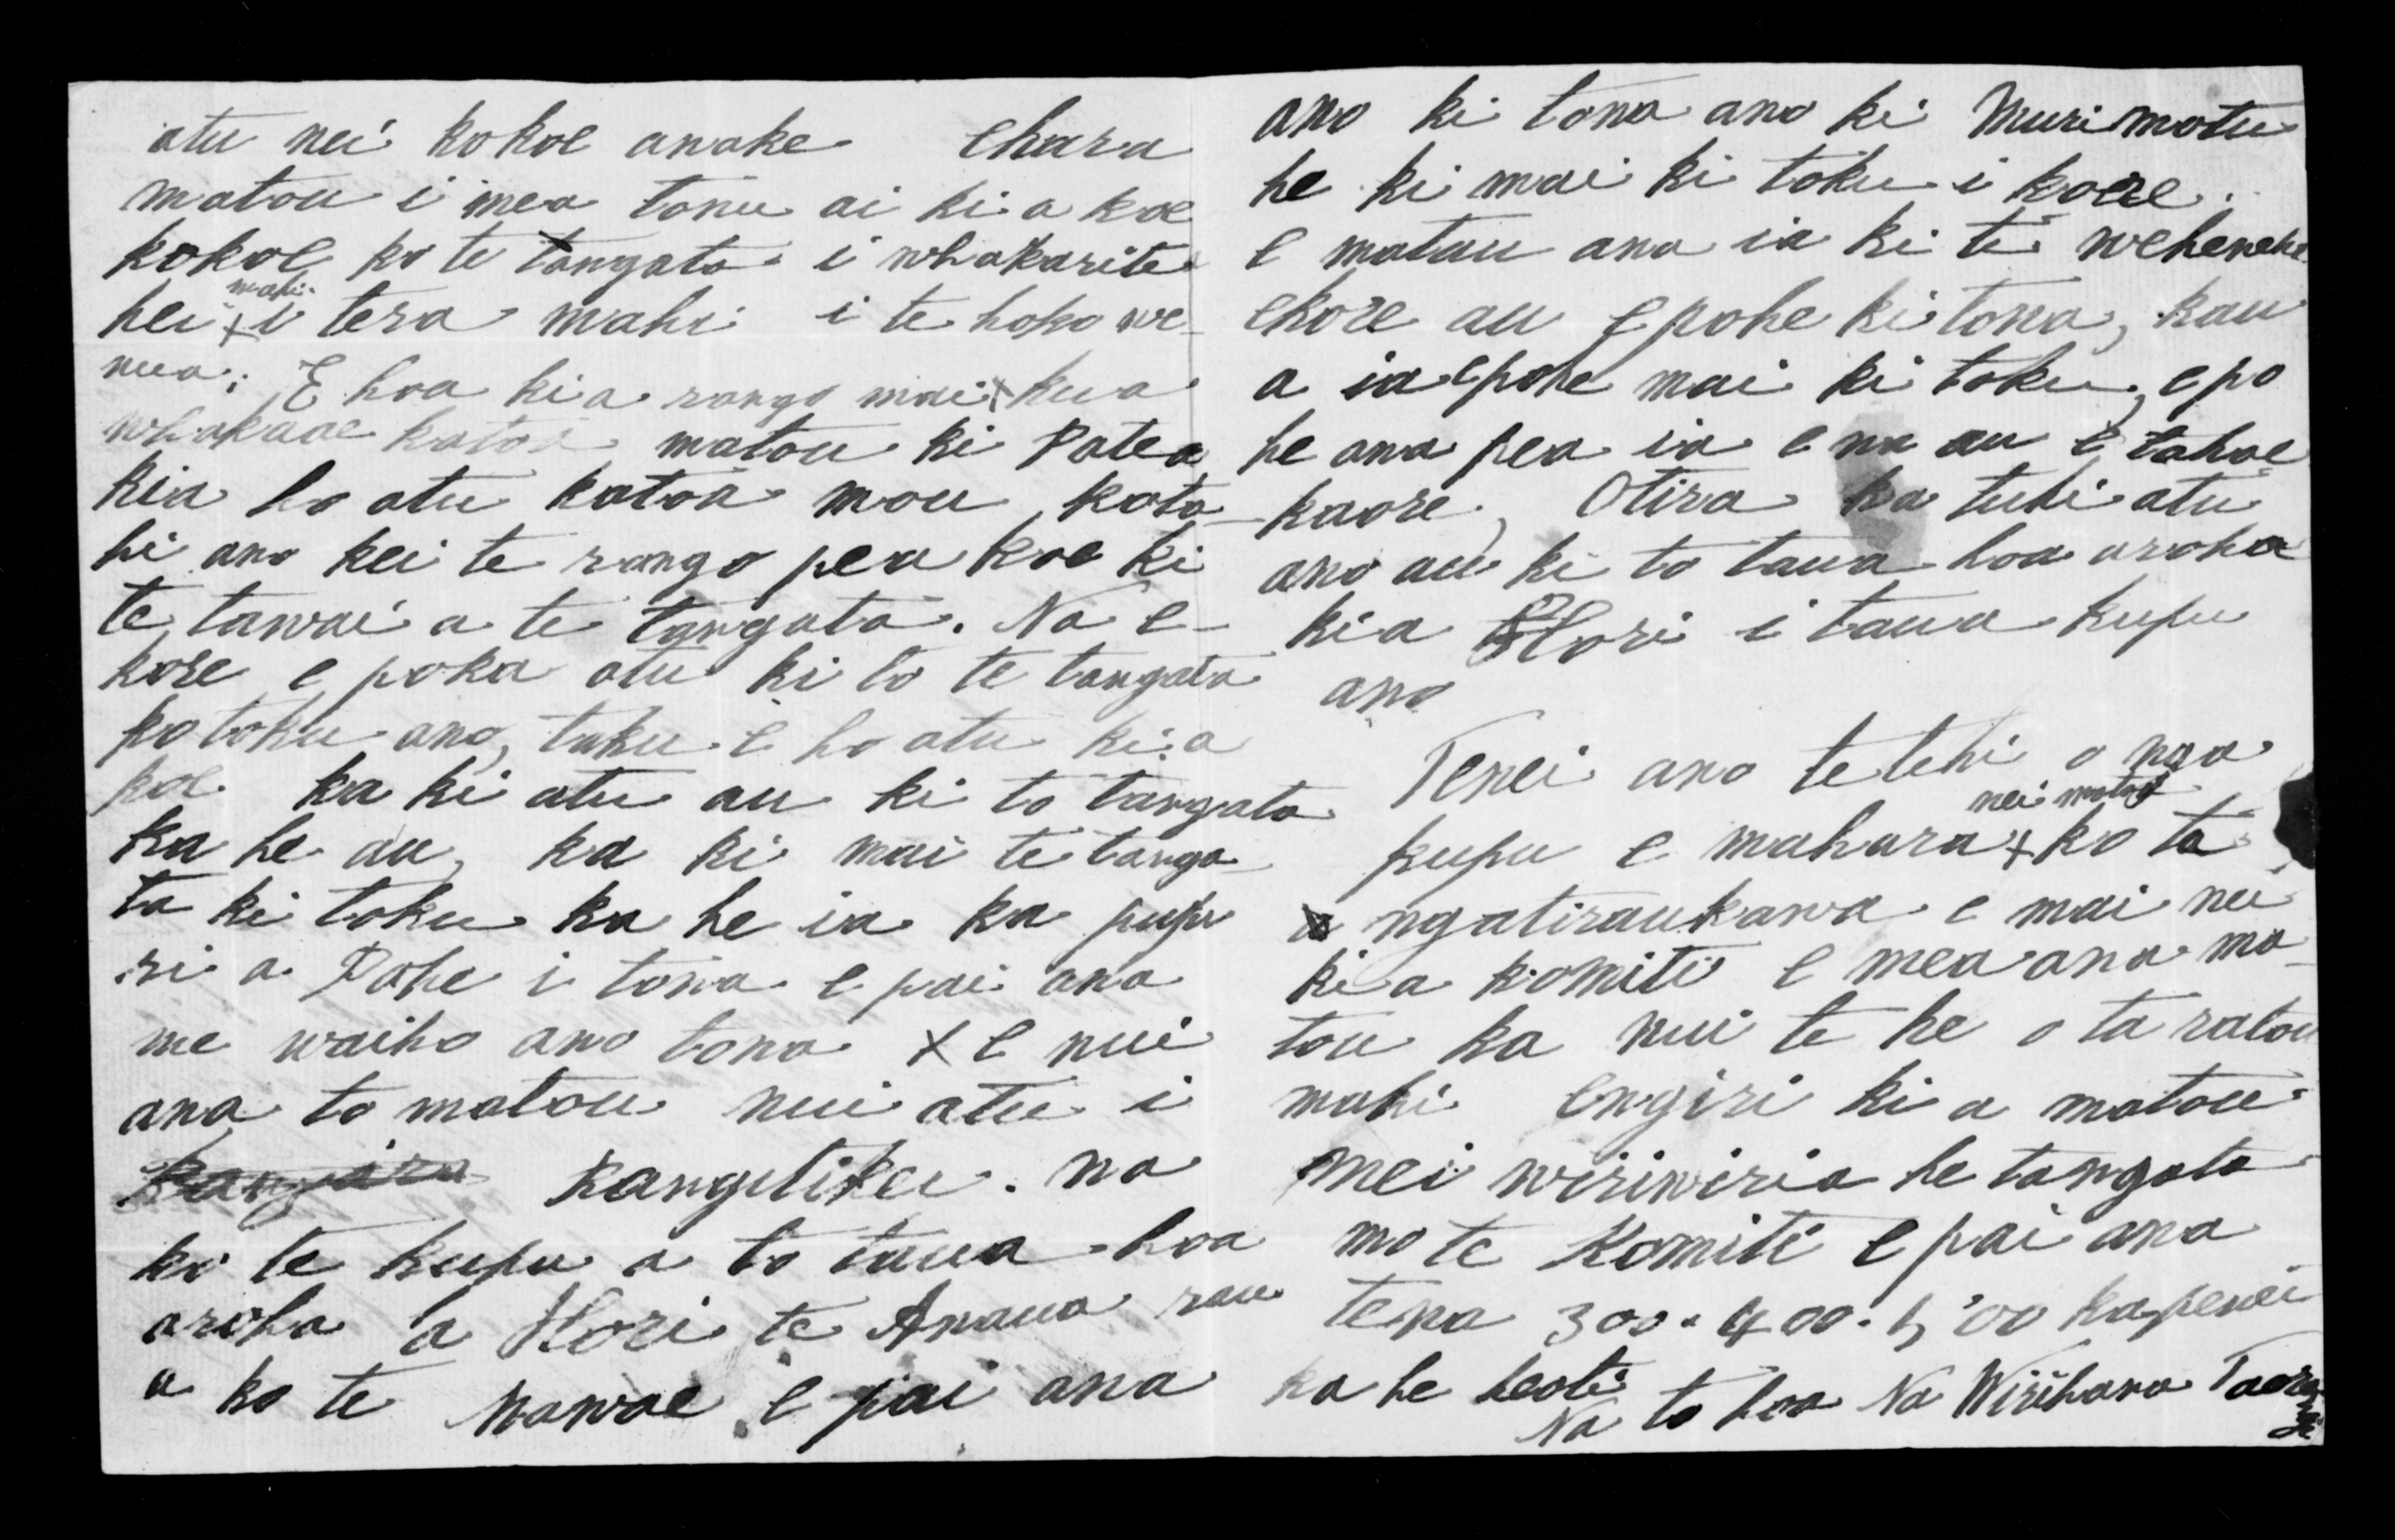 atu nei kokoe anake ehara
matou i mea tonu ai ki a koe
kokoe ko te tangata i whakarite
hei mahi i tera mahi i te hoko we-
nua; E hoa kia rongo mai kua
whakaae katoa matou ki Patea
kia ho atu katoa mou, kota-
hi ano kei te rongo pea koe ki
te tawai a te tangata. Na e-
kore e poka atu ki to te tangata
ko toku ano, taku e ho atu ki a
koe ka ki atu au ki to tangata
ka he au, ka ki mai te tanga-
ta ki toku ka he ia ka pupu
ri a Pohe i tona e pai ana
me waiho ano tona x e nui
ana to matou nui atu i
Rangitikei. na
ko te kupu a to taua hoa
aroha a Hori te Anaua rau
a ko te Mawae e pai ana
ano ki tona ano ki Murimotu
he ki mai ki toku i kore.
e matau ana ia ki te wehewehe
ekore au e pohe ki tona, kau
a ia e pohe mai ki toku, e po
he ana pea ia e na au e tahae
kaore, Otira ka tuhi atu
ano au ki to taua hoa aroha
kia Hori i taua kupu
ano
Tenei ano tetehi o nga
kupu e mahara nei matou ko ta
ngatiraukawa e mai nei
ki a komiti e mea ana ma-
tou ka nui te he o ta ratou
mahi engiri ki a matou
mei wiriwiria he tangata
mo te Komiti e pai ana
tena 300. 400. 500 ka penei
ka he heoti
Na to hoa Na Wirihana Taerangi